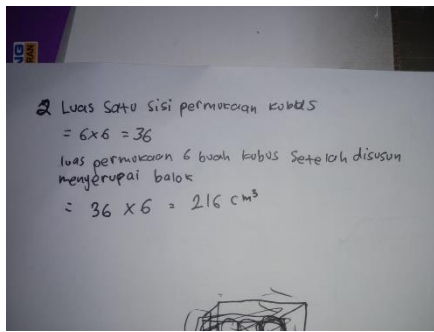 NG
RAN
2 Luas satu sisi permukaan kubus
= 6x6 = 36
luas permukaan 6 buah kubus setelah disusun
menyerupai balok
= 36 x 6 = 216 cm³